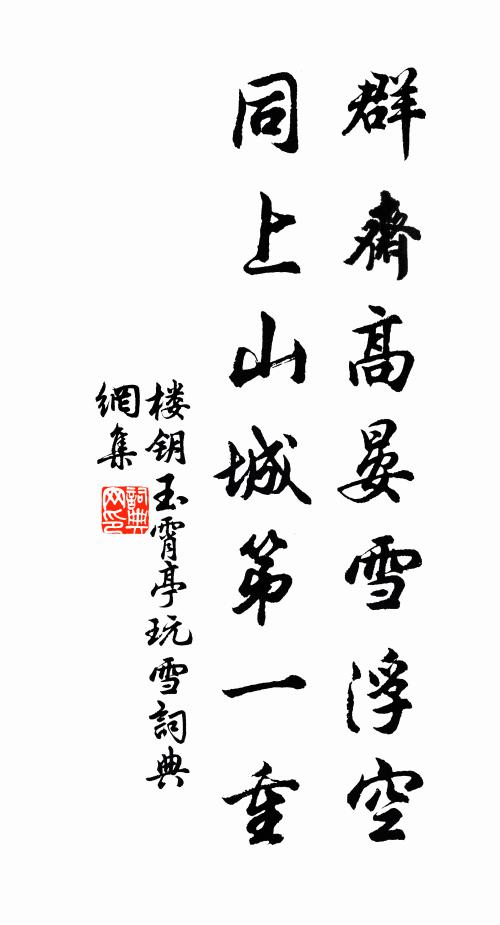 群齋高晏雪浮空
同上山城第一重
楼钥玉霄亭玩雪詞典
網集
詞典
网印